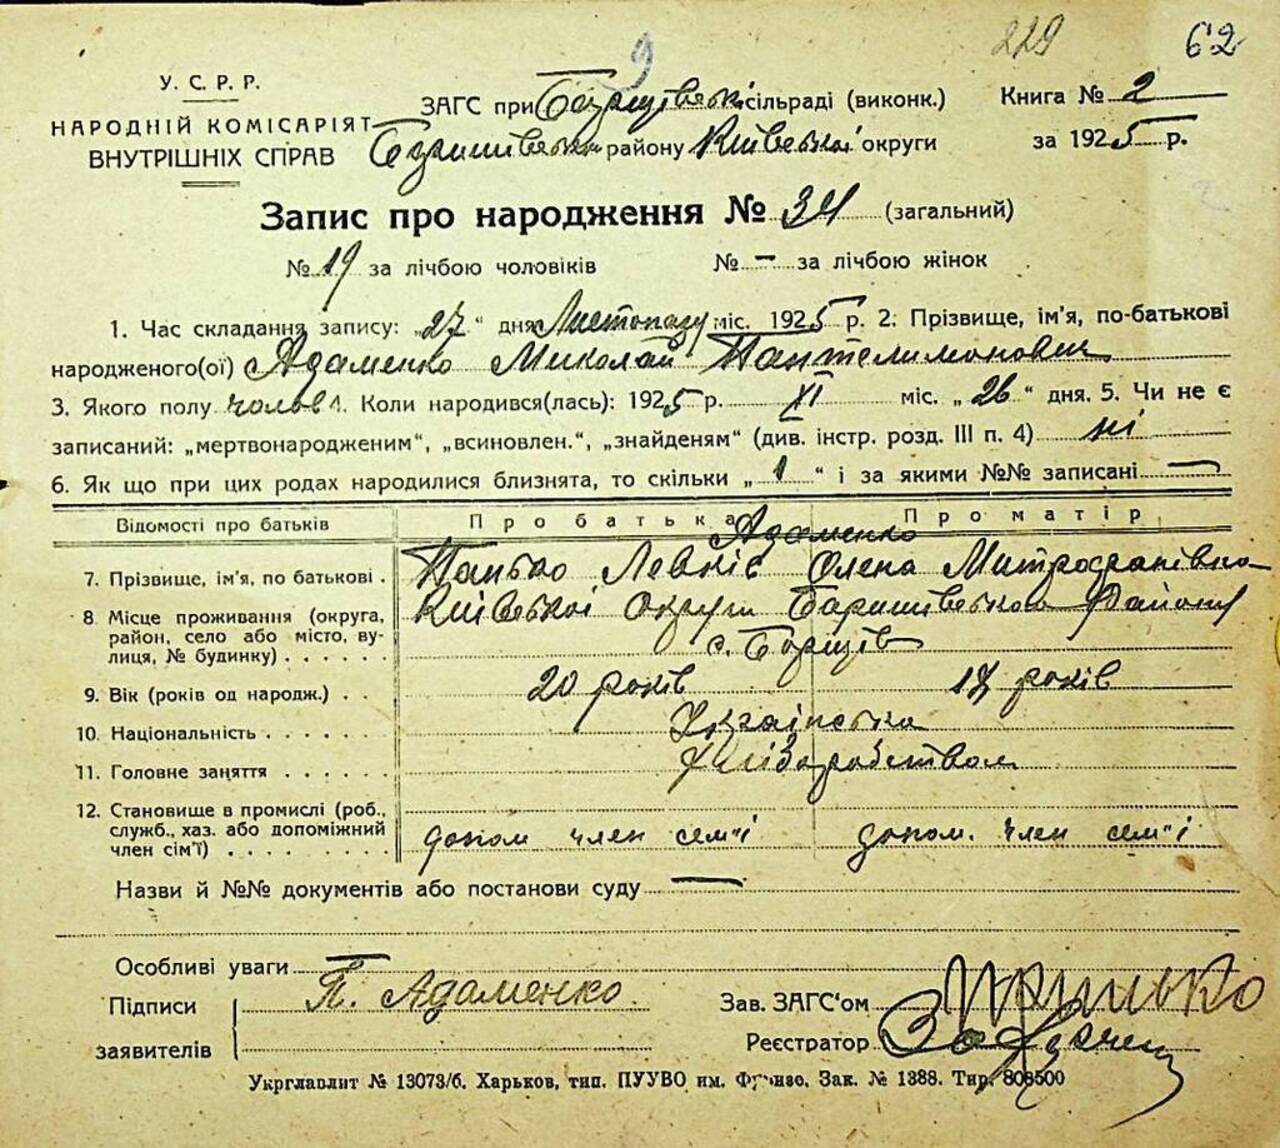 229 62
У. С. Р. Р.
НАРОДНІЙ КОМІСАРІЯТ
ВНУТРІШНІХ СПРАВ
ЗАГС при Борщівські сільраді (виконк.)
Баришівськ району Київської округи
Книга № 2
за 1925 р.
Запис про народження № 34 (загальний)
№ 19 за лічбою чоловіків № — за лічбою жінок
1. Час складання запису: „27" дня Листопаду міс. 1925 р. 2. Прізвище, ім'я, по-батькові
народженого(ої) Адаменко Миколай Пантелимонович
3. Якого полу чолов 4. Коли народився(лась): 1925 р. XI міс. „26" дня. 5. Чи не є
записаний: „мертвонародженим", „всиновлен.", „знайденям" (див. інстр. розд. III п. 4) ні
6. Як що при цих родах народилися близнята, то скільки „1" і за якими №№ записані —
Відомості про батьків Про батька Про матір
Адаменко
7. Прізвище, ім'я, по батькові . Левків Олена Митрофанівна
8 Місце проживання (округа, Київської Округи Баришівського Району
район, село або місто, ву- с. Борщів
лиця, № будинку) . . . . . .
9. Вік (років од народж.) . . 20 років 17 років
10. Національність . . . . . . Українська
11. Головне заняття . . . . . . Хліборобством
12. Становище в промислі (роб.,
служб., хаз. або допоміжний допом член сем"ї допом. член сем"ї
член сім'ї) . . . . . . . . .
Назви й №№ документів або постанови суду —
Особливі уваги
Підписи П. Адаменко Зав. ЗАГС'ом
заявителів Реєстратор
Укрглавлит № 13073/б. Харьков, тип. ПУУВО им. Фрунзе. Зак. № 1388. Тир. 808500